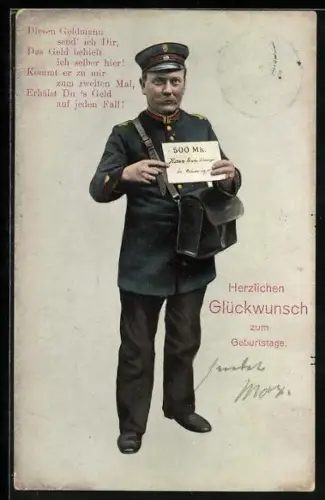 Diesen Geldmann
send' ich Dir,
Das Geld behielt
ich selber hier!
Kommt er zu mir
zum zweiten Mal,
Erhälst Du 's Geld
auf jeden Fall!
500 Mk.
Herzlichen
Glückwunsch
zum
Geburtstage.
sendet
Max.